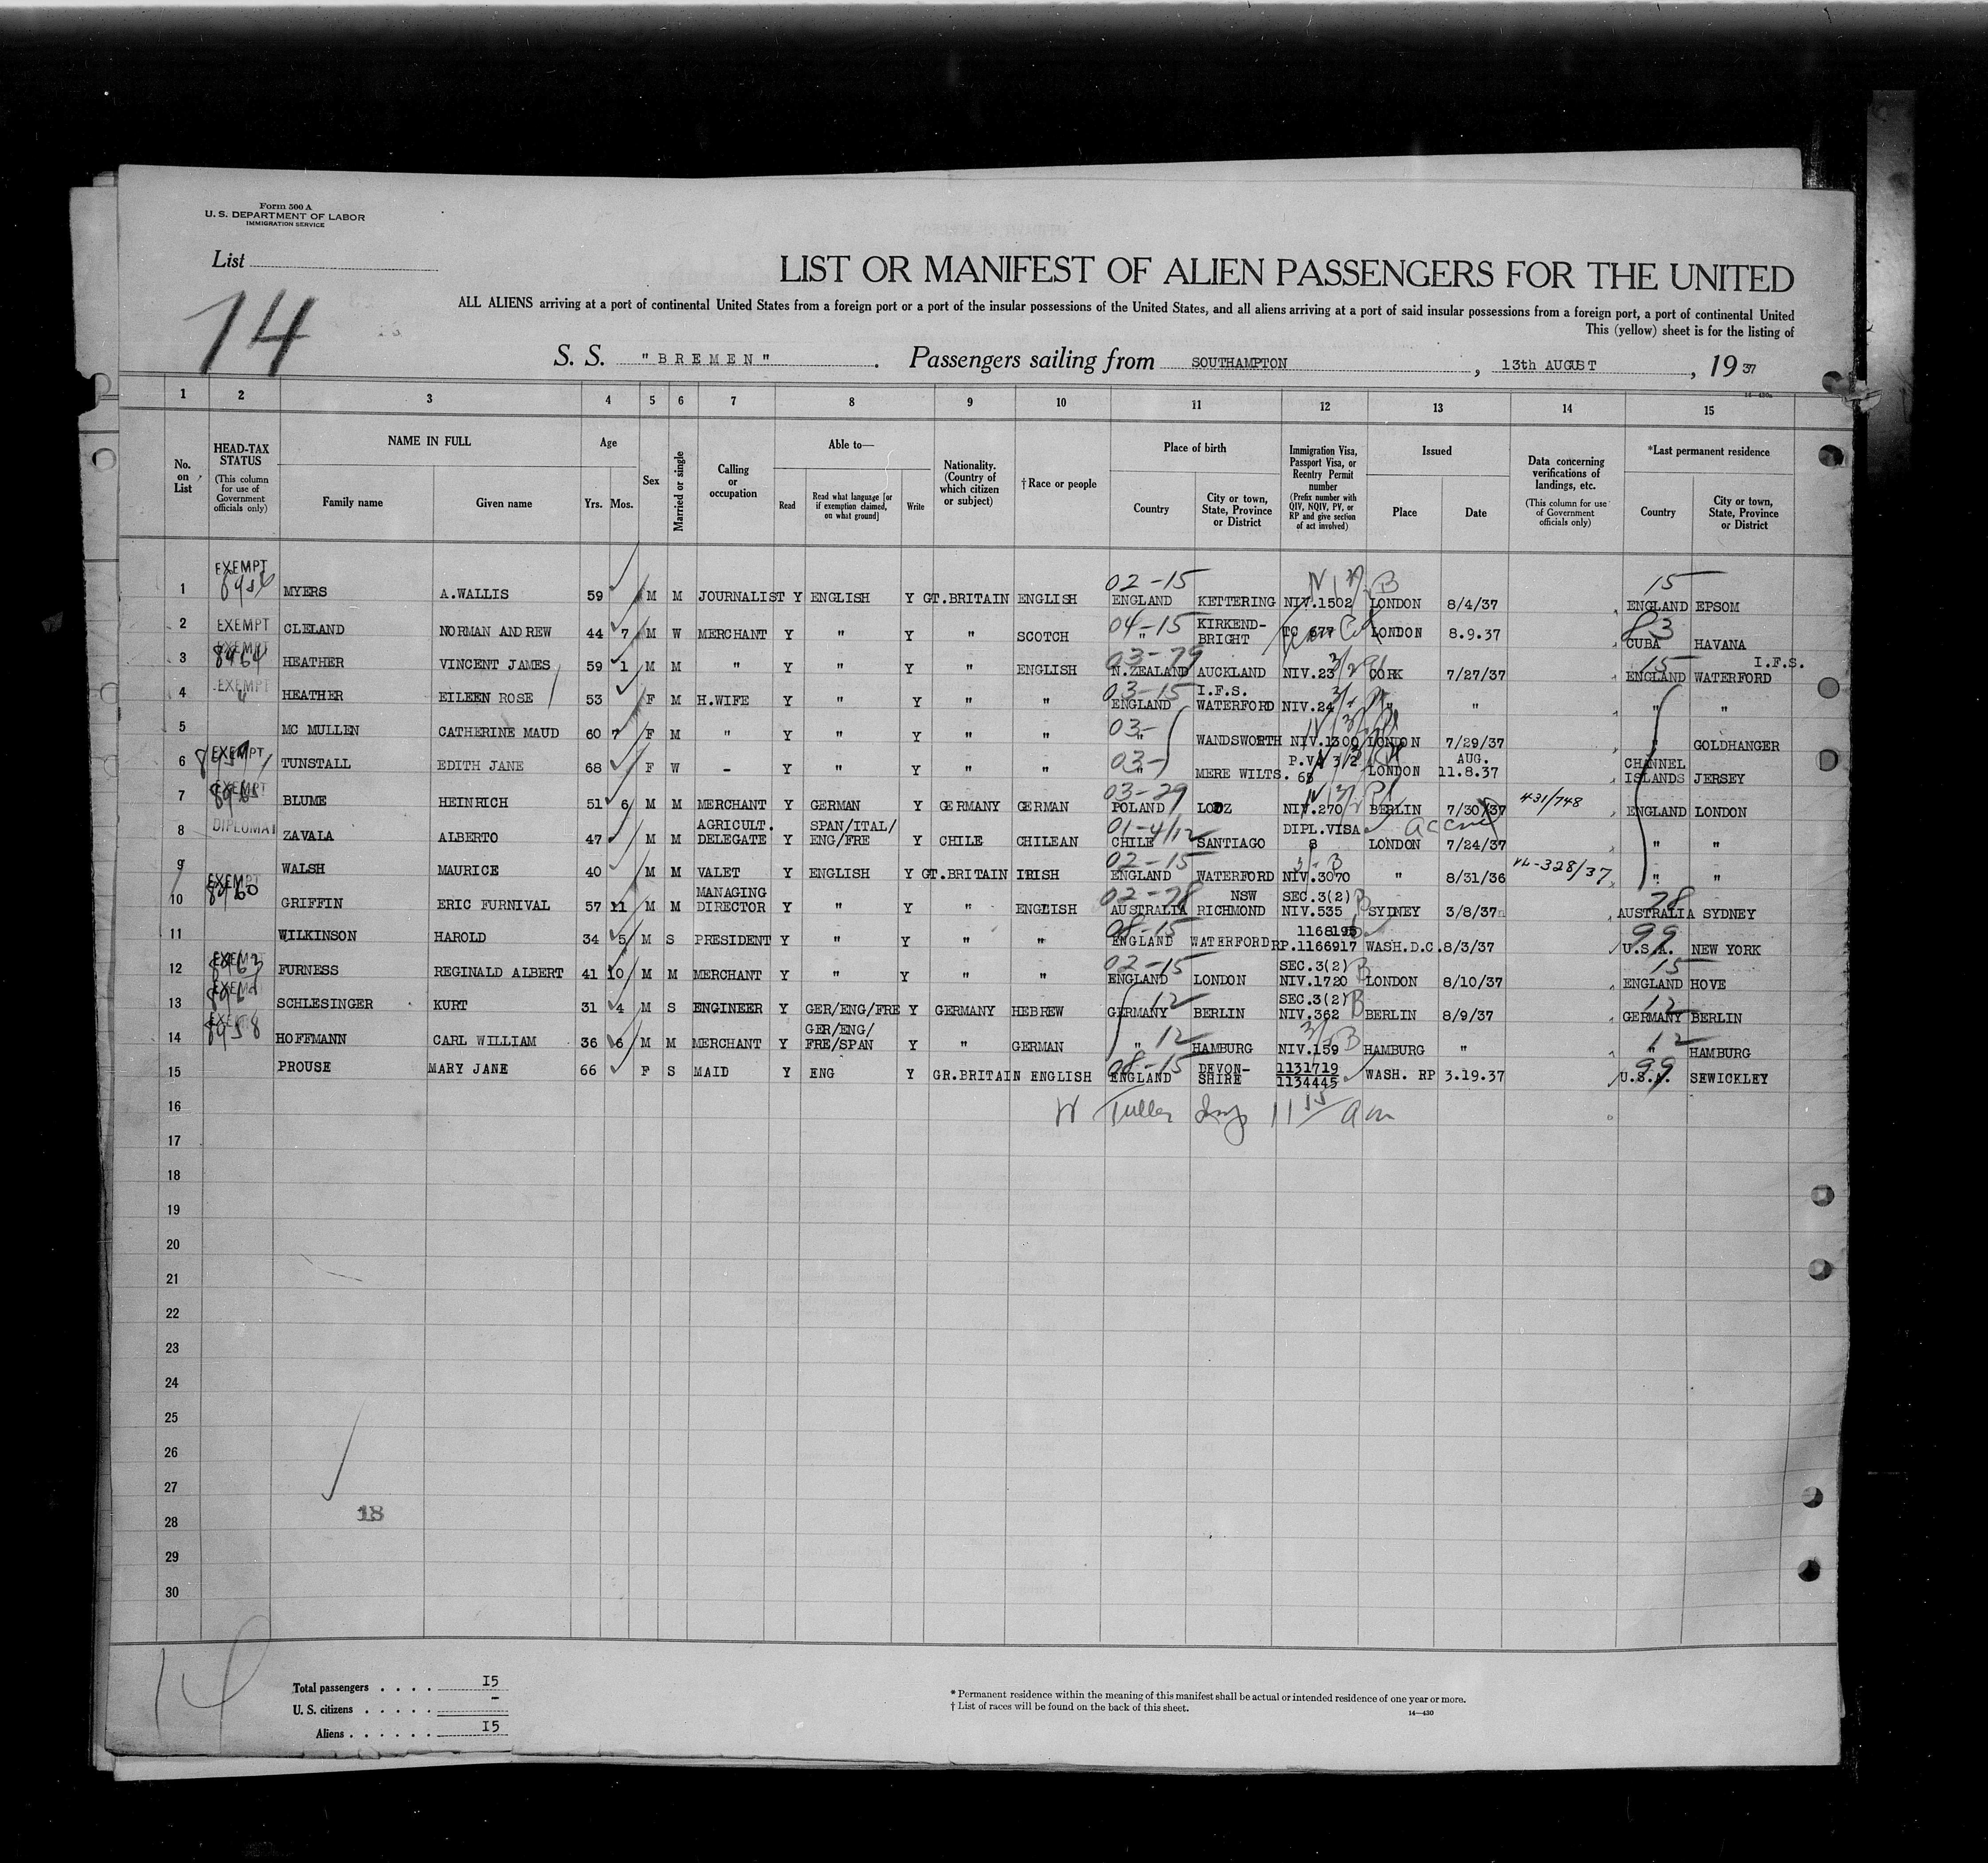 Form 500 A
U. S. DEPARTMENT OF LABOR
IMMIGRATION SERVICE
List
14
LIST OR MANIFEST OF ALIEN PASSENGERS FOR THE UNITED
ALL ALIENS arriving at a port of continental United States from a foreign port or a port of the insular possessions of the United States, and all aliens arriving at a port of said insular possessions from a foreign port, a port of continental United
This (yellow) sheet is for the listing of
S. S. "BREMEN" . Passengers sailing from SOUTHAMPTON , 13th AUGUST , 19 37
14—430a
1 2 3 4 5 6 7 8 9 10 11 12 13 14 15
No. on List
HEAD-TAX STATUS (This column for use of Government officials only)
NAME IN FULL
Family name Given name
Age
Yrs. Mos.
Sex
Married or single
Calling or occupation
Able to—
Read Read what language [or if exemption claimed, on what ground] Write
Nationality. (Country of which citizen or subject)
† Race or people
Place of birth
Country City or town, State, Province or District
Immigration Visa, Passport Visa, or Reentry Permit number (Prefix number with QIV, NQIV, PV, or RP and give section of act involved)
Issued
Place Date
Data concerning verifications of landings, etc. (This column for use of Government officials only)
*Last permanent residence
Country City or town, State, Province or District
EXEMPT 02-15 15
1 MYERS A.WALLIS 59 M M JOURNALIST Y ENGLISH Y GT.BRITAIN ENGLISH ENGLAND KETTERING NIV.1502 LONDON 8/4/37 ENGLAND EPSOM
2 EXEMPT CLELAND NORMAN ANDREW 44 7 M W MERCHANT Y " Y " SCOTCH 04-15 " KIRKEND-BRIGHT TC 677 LONDON 8.9.37 83 CUBA HAVANA
3 EXEMPT 8964 HEATHER VINCENT JAMES 59 1 M M " Y " Y " ENGLISH 03-79 N.ZEALAND AUCKLAND NIV.23 CORK 7/27/37 15 ENGLAND WATERFORD I.F.S.
4 EXEMPT " HEATHER EILEEN ROSE 53 F M H.WIFE Y " Y " " 03-15 ENGLAND I.F.S. WATERFORD NIV.24 " " " "
5 MC MULLEN CATHERINE MAUD 60 7 F M " Y " Y " " 03- " WANDSWORTH NIV.1300 LONDON 7/29/37 " GOLDHANGER
6 EXEMPT TUNSTALL EDITH JANE 68 F W - Y " Y " " 03- " MERE WILTS. P.V. 68 LONDON AUG. 11.8.37 CHANNEL ISLANDS JERSEY
7 EXEMPT BLUME HEINRICH 51 6 M M MERCHANT Y GERMAN Y GERMANY GERMAN 03-29 POLAND LODZ NIV.270 BERLIN 7/30/37 431/748 ENGLAND LONDON
8 DIPLOMAT ZAVALA ALBERTO 47 M M AGRICULT. DELEGATE Y SPAN/ITAL/ENG/FRE Y CHILE CHILEAN 01-4/12 CHILE SANTIAGO DIPL.VISA 8 LONDON 7/24/37 " "
9 WALSH MAURICE 40 M M VALET Y ENGLISH Y GT.BRITAIN IRISH 02-15 ENGLAND WATERFORD NIV.3070 " 8/31/36 " "
10 EXEMPT 8960 GRIFFIN ERIC FURNIVAL 57 11 M M MANAGING DIRECTOR Y " Y " ENGLISH 02-78 AUSTRALIA NSW RICHMOND SEC.3(2) NIV.535 SYDNEY 3/8/37 78 AUSTRALIA SYDNEY
11 WILKINSON HAROLD 34 5 M S PRESIDENT Y " Y " " 08-15 ENGLAND WATERFORD RP.1166917 WASH.D.C. 8/3/37 99 U.S.A. NEW YORK
12 EXEMPT 8963 FURNESS REGINALD ALBERT 41 10 M M MERCHANT Y " Y " " 02-15 ENGLAND LONDON SEC.3(2) NIV.1720 LONDON 8/10/37 15 ENGLAND HOVE
13 SCHLESINGER KURT 31 4 M S ENGINEER Y GER/ENG/FRE Y GERMANY HEBREW 12 GERMANY BERLIN SEC.3(2) NIV.362 BERLIN 8/9/37 12 GERMANY BERLIN
14 8958 HOFFMANN CARL WILLIAM 36 6 M M MERCHANT Y GER/ENG/FRE/SPAN Y " GERMAN 12 " HAMBURG NIV.159 HAMBURG " 12 " HAMBURG
15 PROUSE MARY JANE 66 F S MAID Y ENG Y GR.BRITAIN ENGLISH 08-15 ENGLAND DEVON-SHIRE 1131719 1134445 WASH. RP 3.19.37 99 U.S.A. SEWICKLEY
16
17
18
19
20
21
22
23
24
25
26
27
18
28
29
30
14
Total passengers . . . . 15
U. S. citizens . . . . . -
Aliens . . . . . . 15
* Permanent residence within the meaning of this manifest shall be actual or intended residence of one year or more.
† List of races will be found on the back of this sheet.
14—430